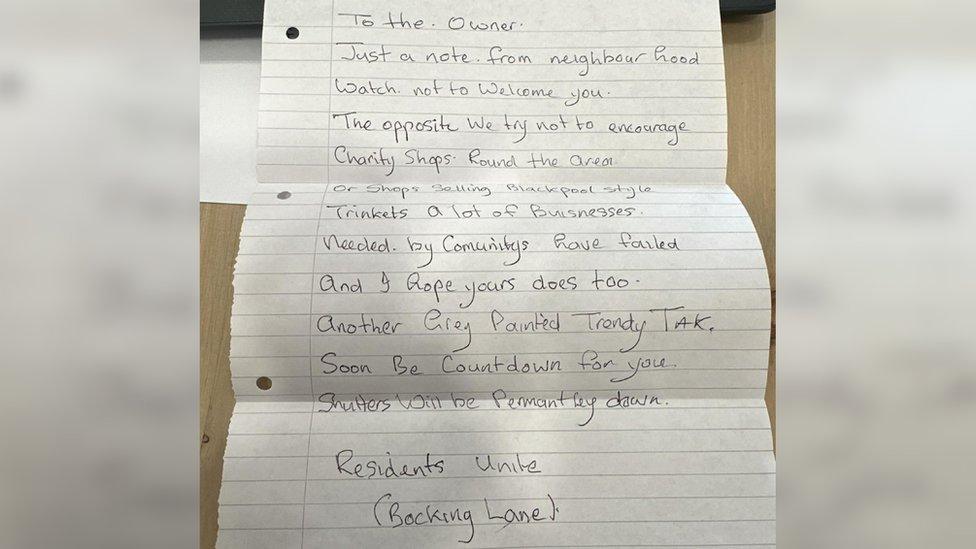 To the. Owner.
Just a note. from neighbour hood
Watch. not to Welcome you.
The opposite We try not to encourage
Charity Shops. Round the area.
Or Shops Selling Blackpool Style
Trinkets a lot of Buisnesses.
Needed. by Comunitys have failed
And I hope yours does too.
Another Grey Painted Trendy TAK.
Soon Be Countdown for you.
Shutters Will be Permantley down.
Residents Unite
(Bocking Lane).